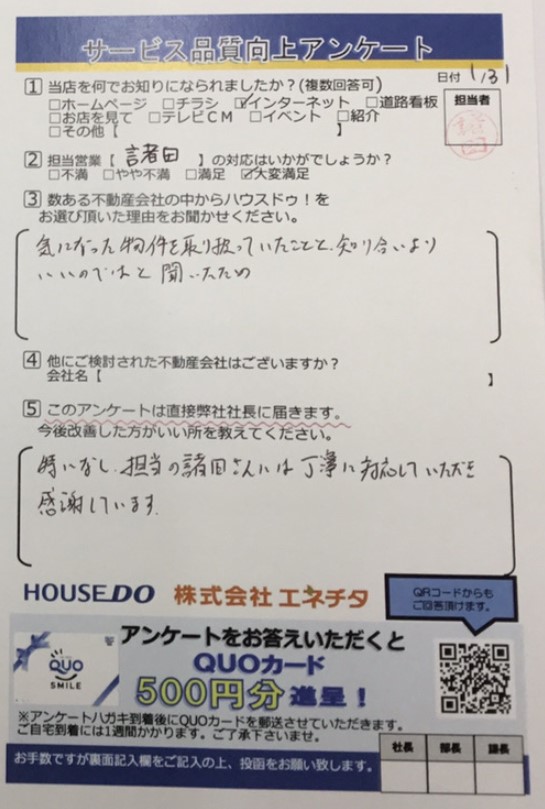 サービス品質向上アンケート
日付 1/31
1 当店を何でお知りになられましたか?(複数回答可)
□ホームページ □チラシ ☑インターネット □道路看板
□お店を見て □テレビCM □イベント □紹介
□その他【 】
担当者
2 担当営業【 諸田 】の対応はいかがでしょうか?
□不満 □やや不満 □満足 ☑大変満足
3 数ある不動産会社の中からハウスドゥ!を
お選び頂いた理由をお聞かせください。
気になった物件を取り扱っていたことと、知り合いより
いいのではと聞いたため
4 他にご検討された不動産会社はございますか?
会社名【 】
5 このアンケートは直接弊社社長に届きます。
今後改善した方がいい所を教えてください。
特になし。担当の諸田さんには丁寧に対応していただき
感謝しています。
HOUSEDO 株式会社 エネチタ
QRコードからも
ご回答頂けます。
アンケートをお答えいただくと
QUOカード
500円分 進呈!
QUO
SMILE
※アンケートハガキ到着後にQUOカードを郵送させていただきます。
ご自宅到着には1週間かかります。ご了承下さいませ。
お手数ですが裏面記入欄をご記入の上、投函をお願い致します。
社長 部長 課長